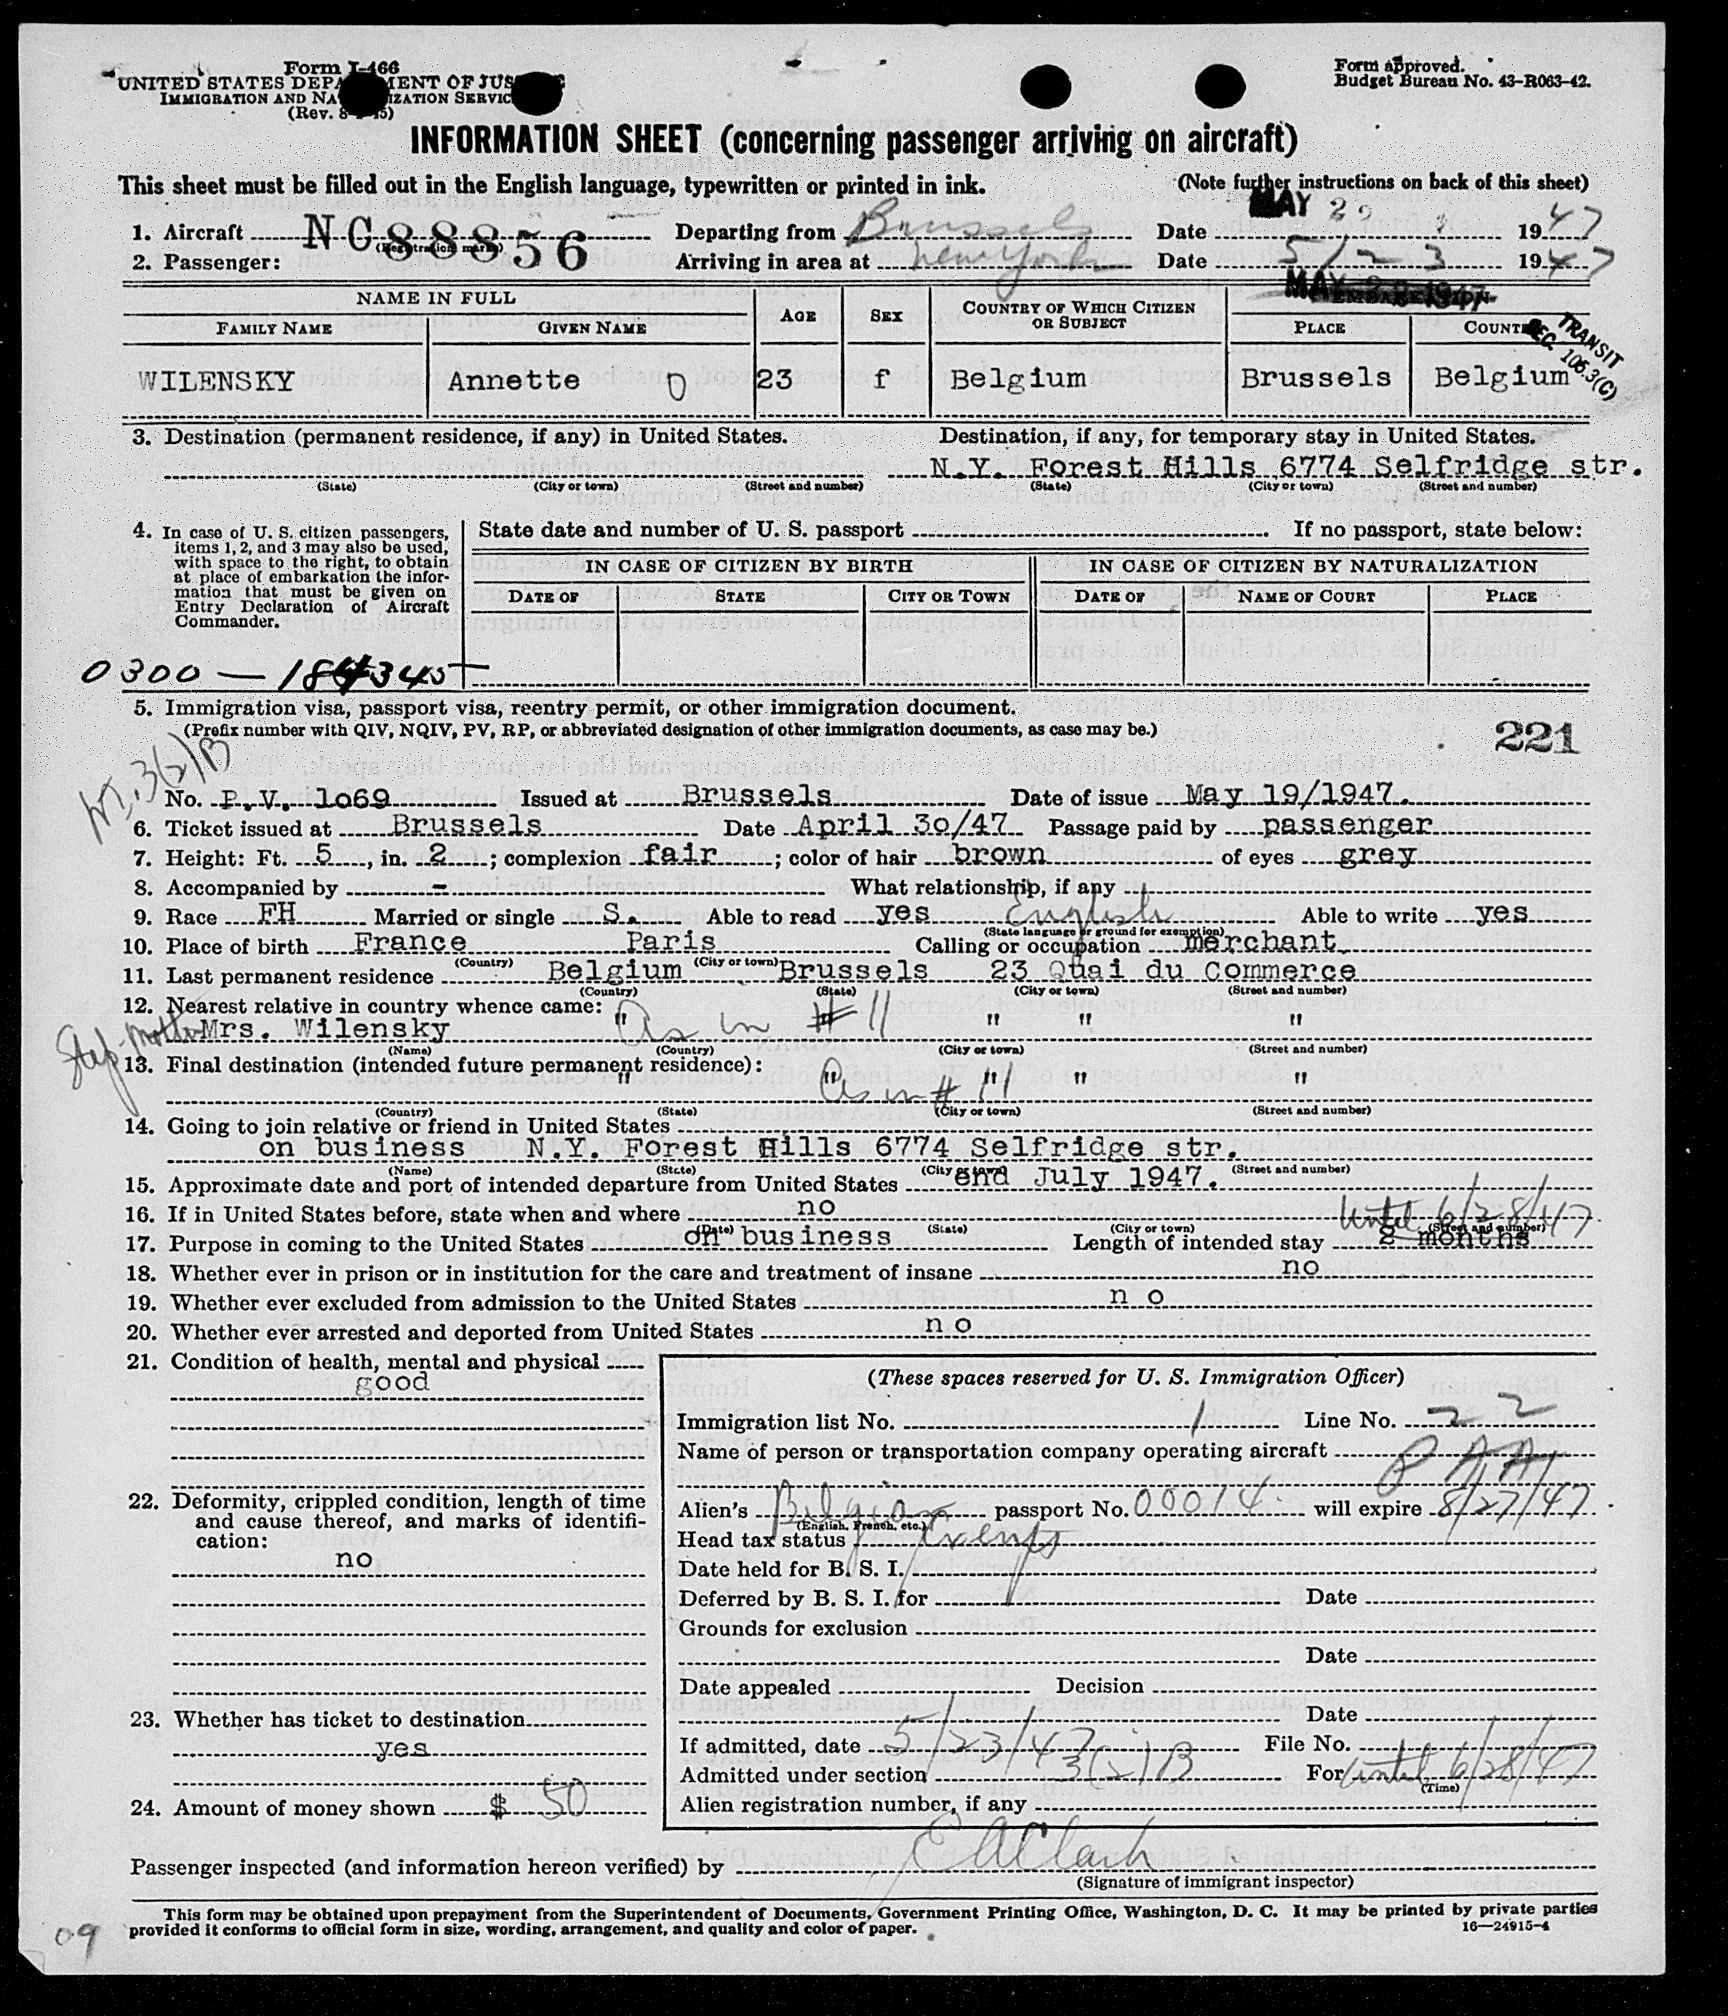 Form I-466
UNITED STATES DEPARTMENT OF JUSTICE
IMMIGRATION AND NATURALIZATION SERVICE
(Rev. 8- -45)
Form approved.
Budget Bureau No. 43-R063-42.
INFORMATION SHEET (concerning passenger arriving on aircraft)
This sheet must be filled out in the English language, typewritten or printed in ink. (Note further instructions on back of this sheet)
MAY 22
1. Aircraft NC88856 Departing from Brussels Date 1947
(Registration marks)
2. Passenger: Arriving in area at New York Date 5/23 1947
MAY 23 1947
NAME IN FULL AGE SEX COUNTRY OF WHICH CITIZEN OR SUBJECT EMBARKATION
FAMILY NAME GIVEN NAME PLACE COUNTRY
TRANSIT
SEC. 106.3(C)
WILENSKY Annette 23 f Belgium Brussels Belgium
3. Destination (permanent residence, if any) in United States. Destination, if any, for temporary stay in United States.
N.Y. Forest Hills 6774 Selfridge str.
(State) (City or town) (Street and number) (State) (City or town) (Street and number)
4. In case of U. S. citizen passengers, items 1, 2, and 3 may also be used, with space to the right, to obtain at place of embarkation the information that must be given on Entry Declaration of Aircraft Commander.
State date and number of U. S. passport If no passport, state below:
IN CASE OF CITIZEN BY BIRTH IN CASE OF CITIZEN BY NATURALIZATION
DATE OF STATE CITY OR TOWN DATE OF NAME OF COURT PLACE
0300 — 184345
5. Immigration visa, passport visa, reentry permit, or other immigration document.
(Prefix number with QIV, NQIV, PV, RP, or abbreviated designation of other immigration documents, as case may be.)
221
3(2)B
No. P.V. 1o69 Issued at Brussels Date of issue May 19/1947.
6. Ticket issued at Brussels Date April 3o/47 Passage paid by passenger
7. Height: Ft. 5, in. 2; complexion fair; color of hair brown of eyes grey
8. Accompanied by - What relationship, if any
9. Race FH Married or single S. Able to read yes English Able to write yes
(State language or ground for exemption)
10. Place of birth France Paris Calling or occupation merchant
(Country) (City or town)
11. Last permanent residence Belgium Brussels 23 Quai du Commerce
(Country) (State) (City or town) (Street and number)
12. Nearest relative in country whence came:
Step-mother Mrs. Wilensky " As in # 11 " " "
(Name) (Country) (City or town) (Street and number)
13. Final destination (intended future permanent residence):
" " As in # 11 " " "
(Country) (State) (City or town) (Street and number)
14. Going to join relative or friend in United States
on business N.Y. Forest Hills 6774 Selfridge str.
(Name) (State) (City or town) (Street and number)
15. Approximate date and port of intended departure from United States end July 1947.
16. If in United States before, state when and where no
(Date) (State) (City or town) (Street and number)
Until 6/28/47.
17. Purpose in coming to the United States on business Length of intended stay 2 months
18. Whether ever in prison or in institution for the care and treatment of insane no
19. Whether ever excluded from admission to the United States n o
20. Whether ever arrested and deported from United States n o
21. Condition of health, mental and physical
good
22. Deformity, crippled condition, length of time and cause thereof, and marks of identification:
no
23. Whether has ticket to destination
yes
24. Amount of money shown $ 50
(These spaces reserved for U. S. Immigration Officer)
Immigration list No. 1 Line No. 22
Name of person or transportation company operating aircraft
P A A
Alien's Belgian passport No. 00014 will expire 8/27/47.
(English, French, etc.)
Head tax status Exempt
Date held for B. S. I.
Deferred by B. S. I. for Date
Grounds for exclusion
Date
Date appealed Decision
Date
If admitted, date 5/23/47 File No.
Admitted under section 3(2)B For until 6/28/47
(Time)
Alien registration number, if any
Passenger inspected (and information hereon verified) by E A Clark
(Signature of immigrant inspector)
This form may be obtained upon prepayment from the Superintendent of Documents, Government Printing Office, Washington, D. C. It may be printed by private parties
provided it conforms to official form in size, wording, arrangement, and quality and color of paper.
16—24915-4
09